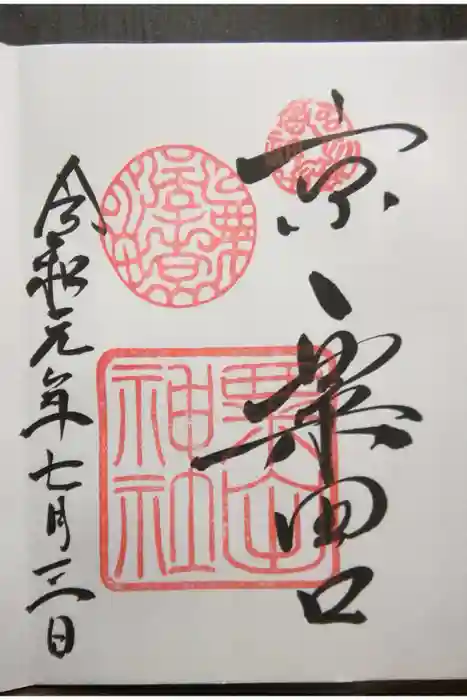 京
粟田口
粟田
神社
令和元年七月三日